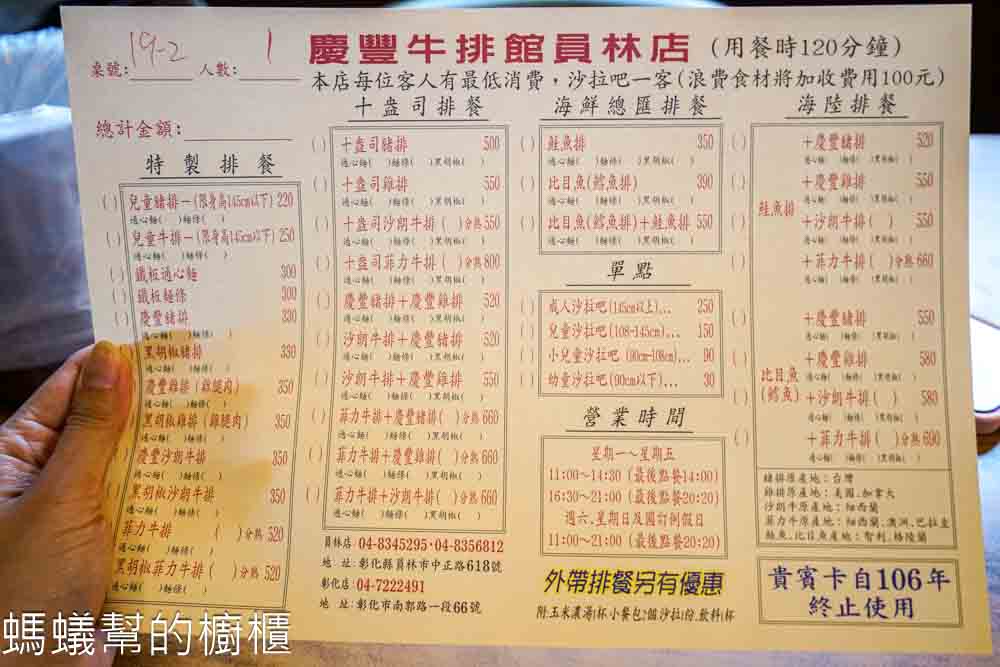 19-2
1
慶豐牛排館員林店 (用餐時120分鐘)
桌號: 人數:
本店每位客人有最低消費，沙拉吧一客(浪費食材將加收費用100元)
總計金額:
特製排餐
( ) 兒童豬排－(限身高145cm以下) 220
通心麵( )麵條( )
( ) 兒童牛排－(限身高145cm以下) 250
通心麵( )麵條( )
( ) 鐵板通心麵 300
( ) 鐵板麵條 300
( ) 慶豐豬排 330
通心麵( )麵條( )
黑胡椒豬排 330
通心麵( )麵條( )
慶豐雞排 (雞腿肉) 350
通心麵( )麵條( )
黑胡椒雞排 (雞腿肉) 350
通心麵( )麵條( )
慶豐沙朗牛排 350
通心麵( )麵條( )
黑胡椒沙朗牛排 350
通心麵( )麵條( )
菲力牛排 ( )分熟 520
通心麵( )麵條( )
黑胡椒菲力牛排 ( )分熟 520
通心麵( )麵條( )
十盎司排餐
( ) 十盎司豬排 500
通心麵( )麵條( )黑胡椒( )
( ) 十盎司雞排 550
通心麵( )麵條( )黑胡椒( )
( ) 十盎司沙朗牛排 ( )分熟 550
通心麵( )麵條( )黑胡椒( )
( ) 十盎司菲力牛排 ( )分熟 800
通心麵( )麵條( )黑胡椒( )
( ) 慶豐豬排＋慶豐雞排 520
通心麵( )麵條( )黑胡椒( )
( ) 沙朗牛排＋慶豐豬排 520
通心麵( )麵條( )黑胡椒( )
( ) 沙朗牛排＋慶豐雞排 550
通心麵( )麵條( )黑胡椒( )
( ) 菲力牛排＋慶豐豬排( )分熟 660
通心麵( )麵條( )黑胡椒( )
( ) 菲力牛排＋慶豐雞排( )分熟 660
通心麵( )麵條( )黑胡椒( )
( ) 菲力牛排＋沙朗牛排( )分熟 660
通心麵( )麵條( )黑胡椒( )
員林店 04-8345295·04-8356812
地 址: 彰化縣員林市中正路618號
彰化店 04-7222491
地 址: 彰化市南郭路一段66號
海鮮總匯排餐
( ) 鮭魚排 350
通心麵( )麵條( )黑胡椒( )
( ) 比目魚(鱈魚排) 390
通心麵( )麵條( )黑胡椒( )
( ) 比目魚(鱈魚排)＋鮭魚排 550
通心麵( )麵條( )黑胡椒( )
單點
( ) 成人沙拉吧(145cm以上)... 250
( ) 兒童沙拉吧(108-145cm)... 150
( ) 小兒童沙拉吧 (90cm-108cm)... 90
( ) 幼童沙拉吧(90cm以下)... 30
營業時間
星期一～星期五
11:00～14:30 (最後點餐14:00)
16:30～21:00 (最後點餐20:20)
週六、星期日及國訂例假日
11:00～21:00 (最後點餐20:20)
外帶排餐另有優惠
附:玉米濃湯1杯小餐包2個沙拉1份.飲料1杯
海陸排餐
鮭魚排
( ) ＋慶豐豬排 520
通心麵( )麵條( )黑胡椒( )
( ) ＋慶豐雞排 550
通心麵( )麵條( )黑胡椒( )
( ) ＋沙朗牛排( ) 550
通心麵( )麵條( )黑胡椒( )
( ) ＋菲力牛排( )分熟 660
通心麵( )麵條( )黑胡椒( )
比目魚
(鱈魚)
( ) ＋慶豐豬排 550
通心麵( )麵條( )黑胡椒( )
( ) ＋慶豐雞排 580
通心麵( )麵條( )黑胡椒( )
( ) ＋沙朗牛排( ) 580
通心麵( )麵條( )黑胡椒( )
( ) ＋菲力牛排( )分熟 690
通心麵( )麵條( )黑胡椒( )
豬排原產地：台灣
雞排原產地：美國.加拿大
沙朗牛原產地：紐西蘭
菲力牛原產地：紐西蘭.澳洲.巴拉圭
鮭魚.比目魚原產地：智利.格陵蘭
貴賓卡自106年
終止使用
螞蟻幫的櫥櫃